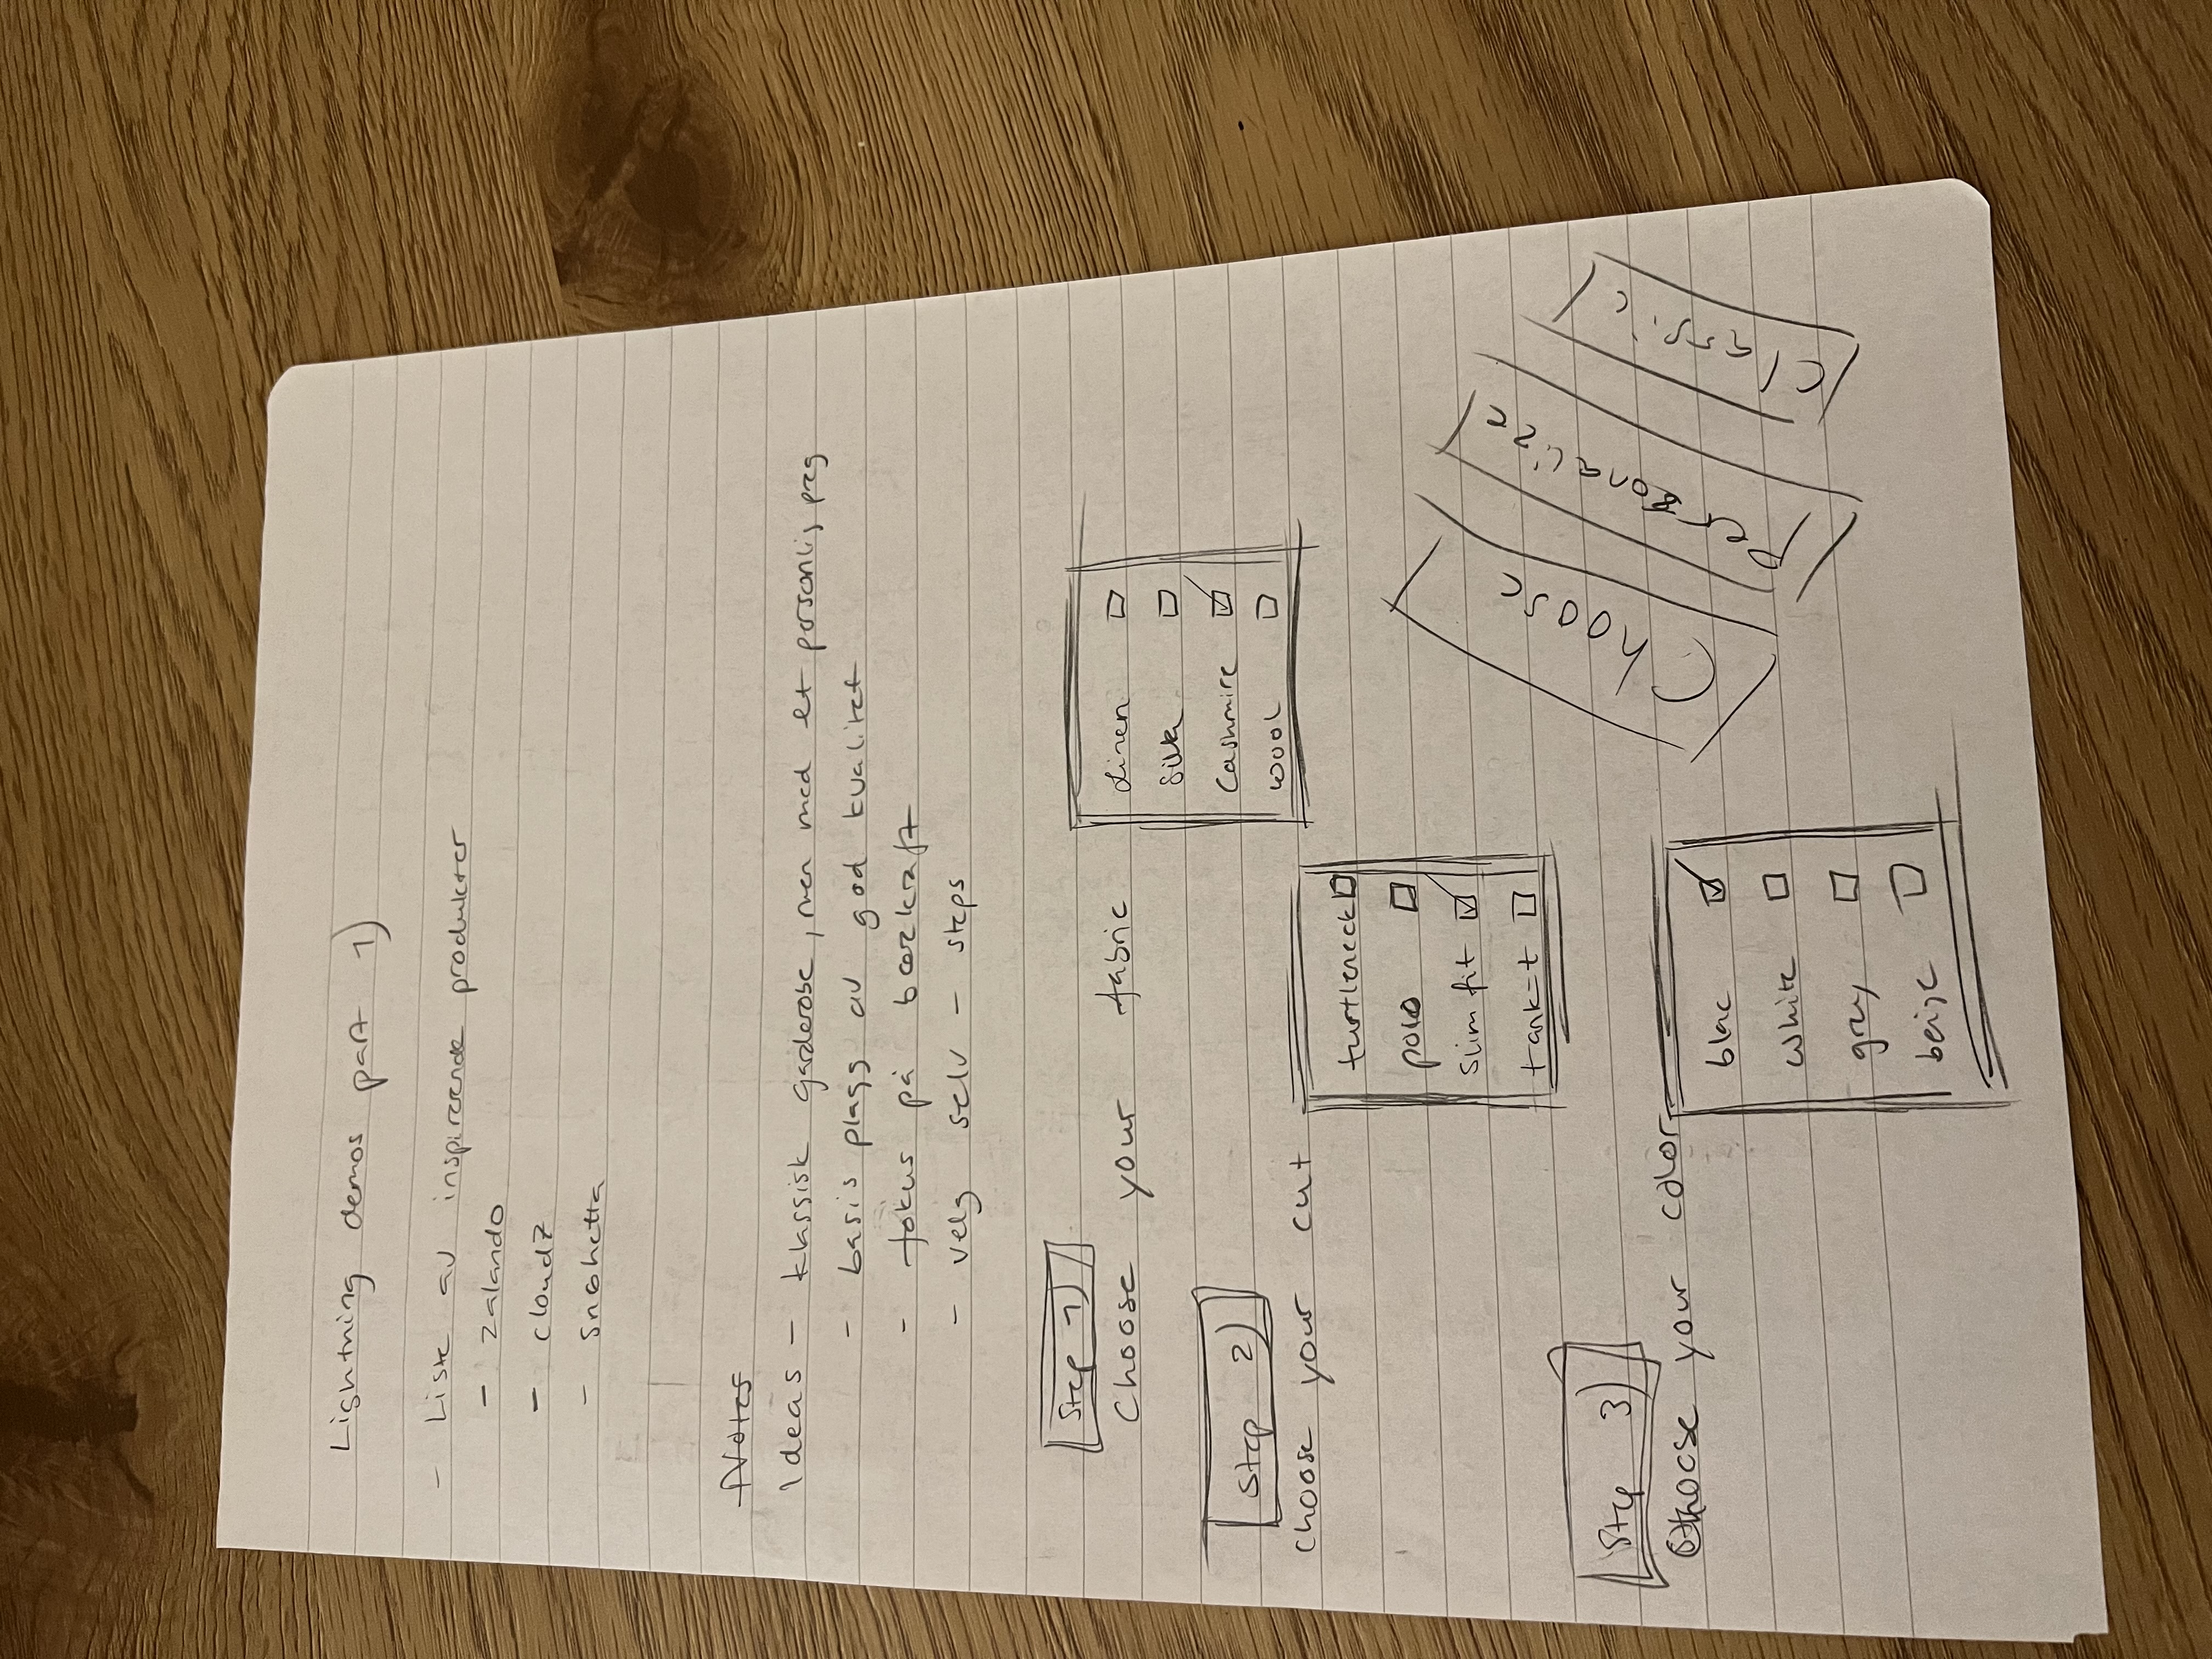 Lightning demos part 1)
- Liste av inspirerende produkter
- zalando
- cloud7
- snøhetta
Notes
Ideas - klassisk garderobe, men med et personlig preg
- basis plagg av god kvalitet
- fokus på bærekraft
- velg selv - steps
Step 1)
Choose your fabric
Linen
Silk
Cashmire
wool
Step 2)
choose your cut
turtleneck
polo
slim fit
tank-t
Step 3)
Choose your color
blac
white
gray
beige
Choose
Personalize
Classic